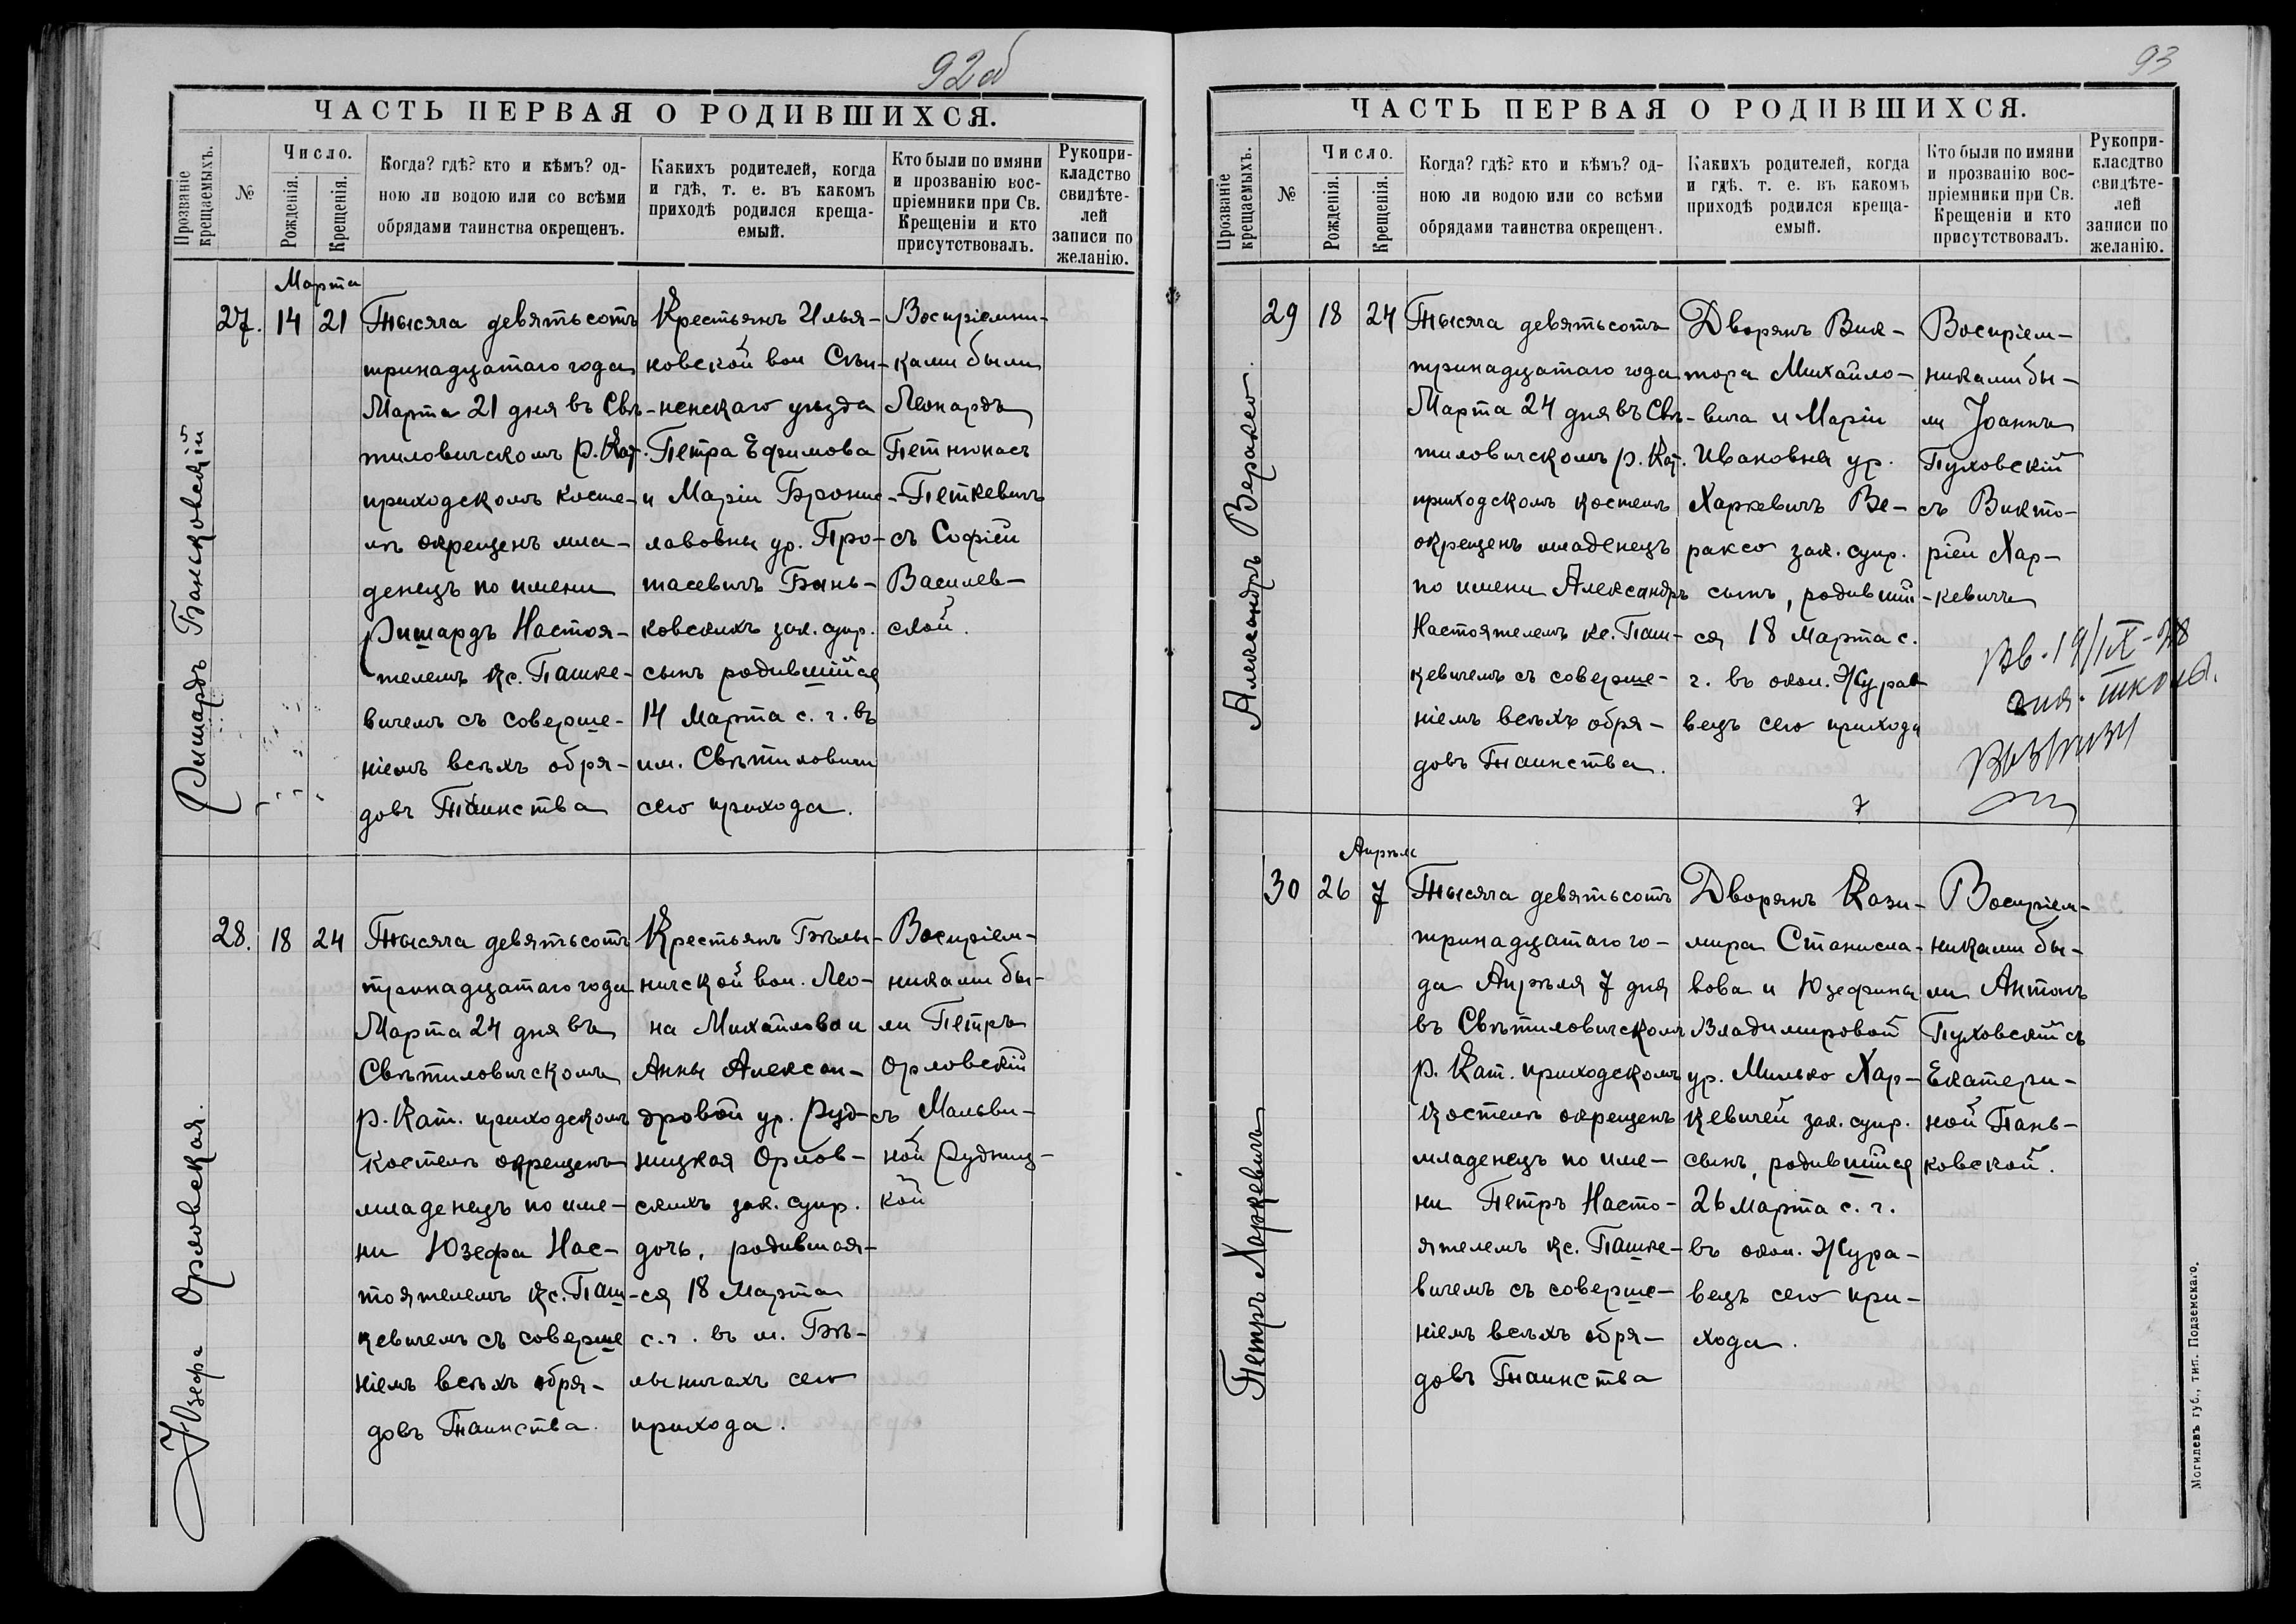 92об
ЧАСТЬ ПЕРВАЯ О РОДИВШИХСЯ.
Прозваніе крещаемыхъ.
№
Число.
Рожденія.
Крещенія.
Когда? гдѣ? кто и кѣмъ? од-
ною ли водою или со всѣми
обрядами таинства окрещенъ.
Какихъ родителей, когда
и гдѣ, т. е. въ какомъ
приходѣ родился креща-
емый.
Кто были по имяни
и прозванію вос-
пріемники при Св.
Крещеніи и кто
присутствовалъ.
Рукопри-
кладство
свидѣте-
лей
записи по
желанію.
Ришардъ Баньковскій
Марта
27. 14 21
Тысяча девятьсотъ
тринадцатаго года
Марта 21 дня въ Свѣ-
тиловичскомъ р. Кат.
приходскомъ косте-
лѣ окрещенъ мла-
денецъ по имени
Ришардъ Настоя-
телемъ кс. Пашке-
вичемъ съ соверше-
ніемъ всѣхъ обря-
довъ Таинства
Крестьянъ Илья-
ковской вол Сѣн-
ненскаго уѣзда
Петра Ефимова
и Маріи Бронис-
лавовны ур. Про-
тасевичъ Бань-
ковскихъ зак. супр.
сынъ родившійся
14 Марта с. г. въ
им. Свѣтиловичи
сего прихода.
Воспріемни-
ками были
Леонардъ
Петнюнасъ
Петкевичъ
съ Софіей
Василев-
ской.
Юзефа Орловская.
28. 18 24
Тысяча девятьсотъ
тринадцатаго года
Марта 24 дня въ
Свѣтиловичскомъ
р. Кат. приходскомъ
костелѣ окрещенъ
младенецъ по име-
ни Юзефа Нас-
тоятелемъ кс. Паш-
кевичемъ съ соверше
ніемъ всѣхъ обря-
довъ Таинства.
Крестьянъ Бѣлы-
ничской вол. Лео-
на Михайлова и
Анны Алексан-
дровой ур. Руд-
ницкая Орлов-
скихъ зак. супр.
дочь, родившая-
ся 18 Марта
с. г. въ м. Бѣ-
лыничахъ сего
прихода.
Воспріем-
никами бы-
ли Петръ
Орловскій
съ Мальви-
ной Рудниц-
кой
93
ЧАСТЬ ПЕРВАЯ О РОДИВШИХСЯ.
Прозваніе крещаемыхъ.
№
Число.
Рожденія.
Крещенія.
Когда? гдѣ? кто и кѣмъ? од-
ною ли водою или со всѣми
обрядами таинства окрещенъ.
Какихъ родителей, когда
и гдѣ, т. е. въ какомъ
приходѣ родился креща-
емый.
Кто были по имяни
и прозванію вос-
пріемники при Св.
Крещеніи и кто
присутствовалъ.
Рукопри-
класдтво
свидѣте-
лей
записи по
желанію.
Александръ Вераксо.
29 18 24
Тысяча девятьсотъ
тринадцатаго года
Марта 24 дня въ Свѣ-
тиловичскомъ р. Кат.
приходскомъ костелѣ
окрещенъ младенецъ
по имени Александръ
Настоятелемъ кс. Паш-
кевичемъ съ соверше-
ніемъ всѣхъ обря-
довъ Таинства.
Дворянъ Вик-
тора Михайло-
вича и Маріи
Ивановны ур.
Харкевичъ Ве-
раксо зак. супр.
сынъ, родившій-
ся 18 Марта с.
г. въ окол. Журав
вецъ сего прихода
Воспріем-
никами бы-
ли Іоаннъ
Пуховскій
съ Викто-
ріей Хар-
кевичъ
для школы.
Петръ Харкевичъ
Апрѣля
30 26 7
Тысяча девятьсотъ
тринадцатаго го-
да Апрѣля 7 дня
въ Свѣтиловичскомъ
р. Кат. приходскомъ
костелѣ окрещенъ
младенецъ по име-
ни Петръ Насто-
ятелемъ кс. Пашке-
вичемъ съ соверше-
ніемъ всѣхъ обря-
довъ Таинства
Дворянъ Кази-
мира Станисла-
вова и Юзефины
Владимировой
ур. Милько Хар-
кевичей зак. супр.
сынъ, родившійся
26 Марта с. г.
въ окол. Жура-
вецъ сего при-
хода.
Воспріем-
никами бы-
ли Антонъ
Пуховскій съ
Екатери-
ной Пань-
ковской.
Могилевъ губ., тип. Подземскаго.